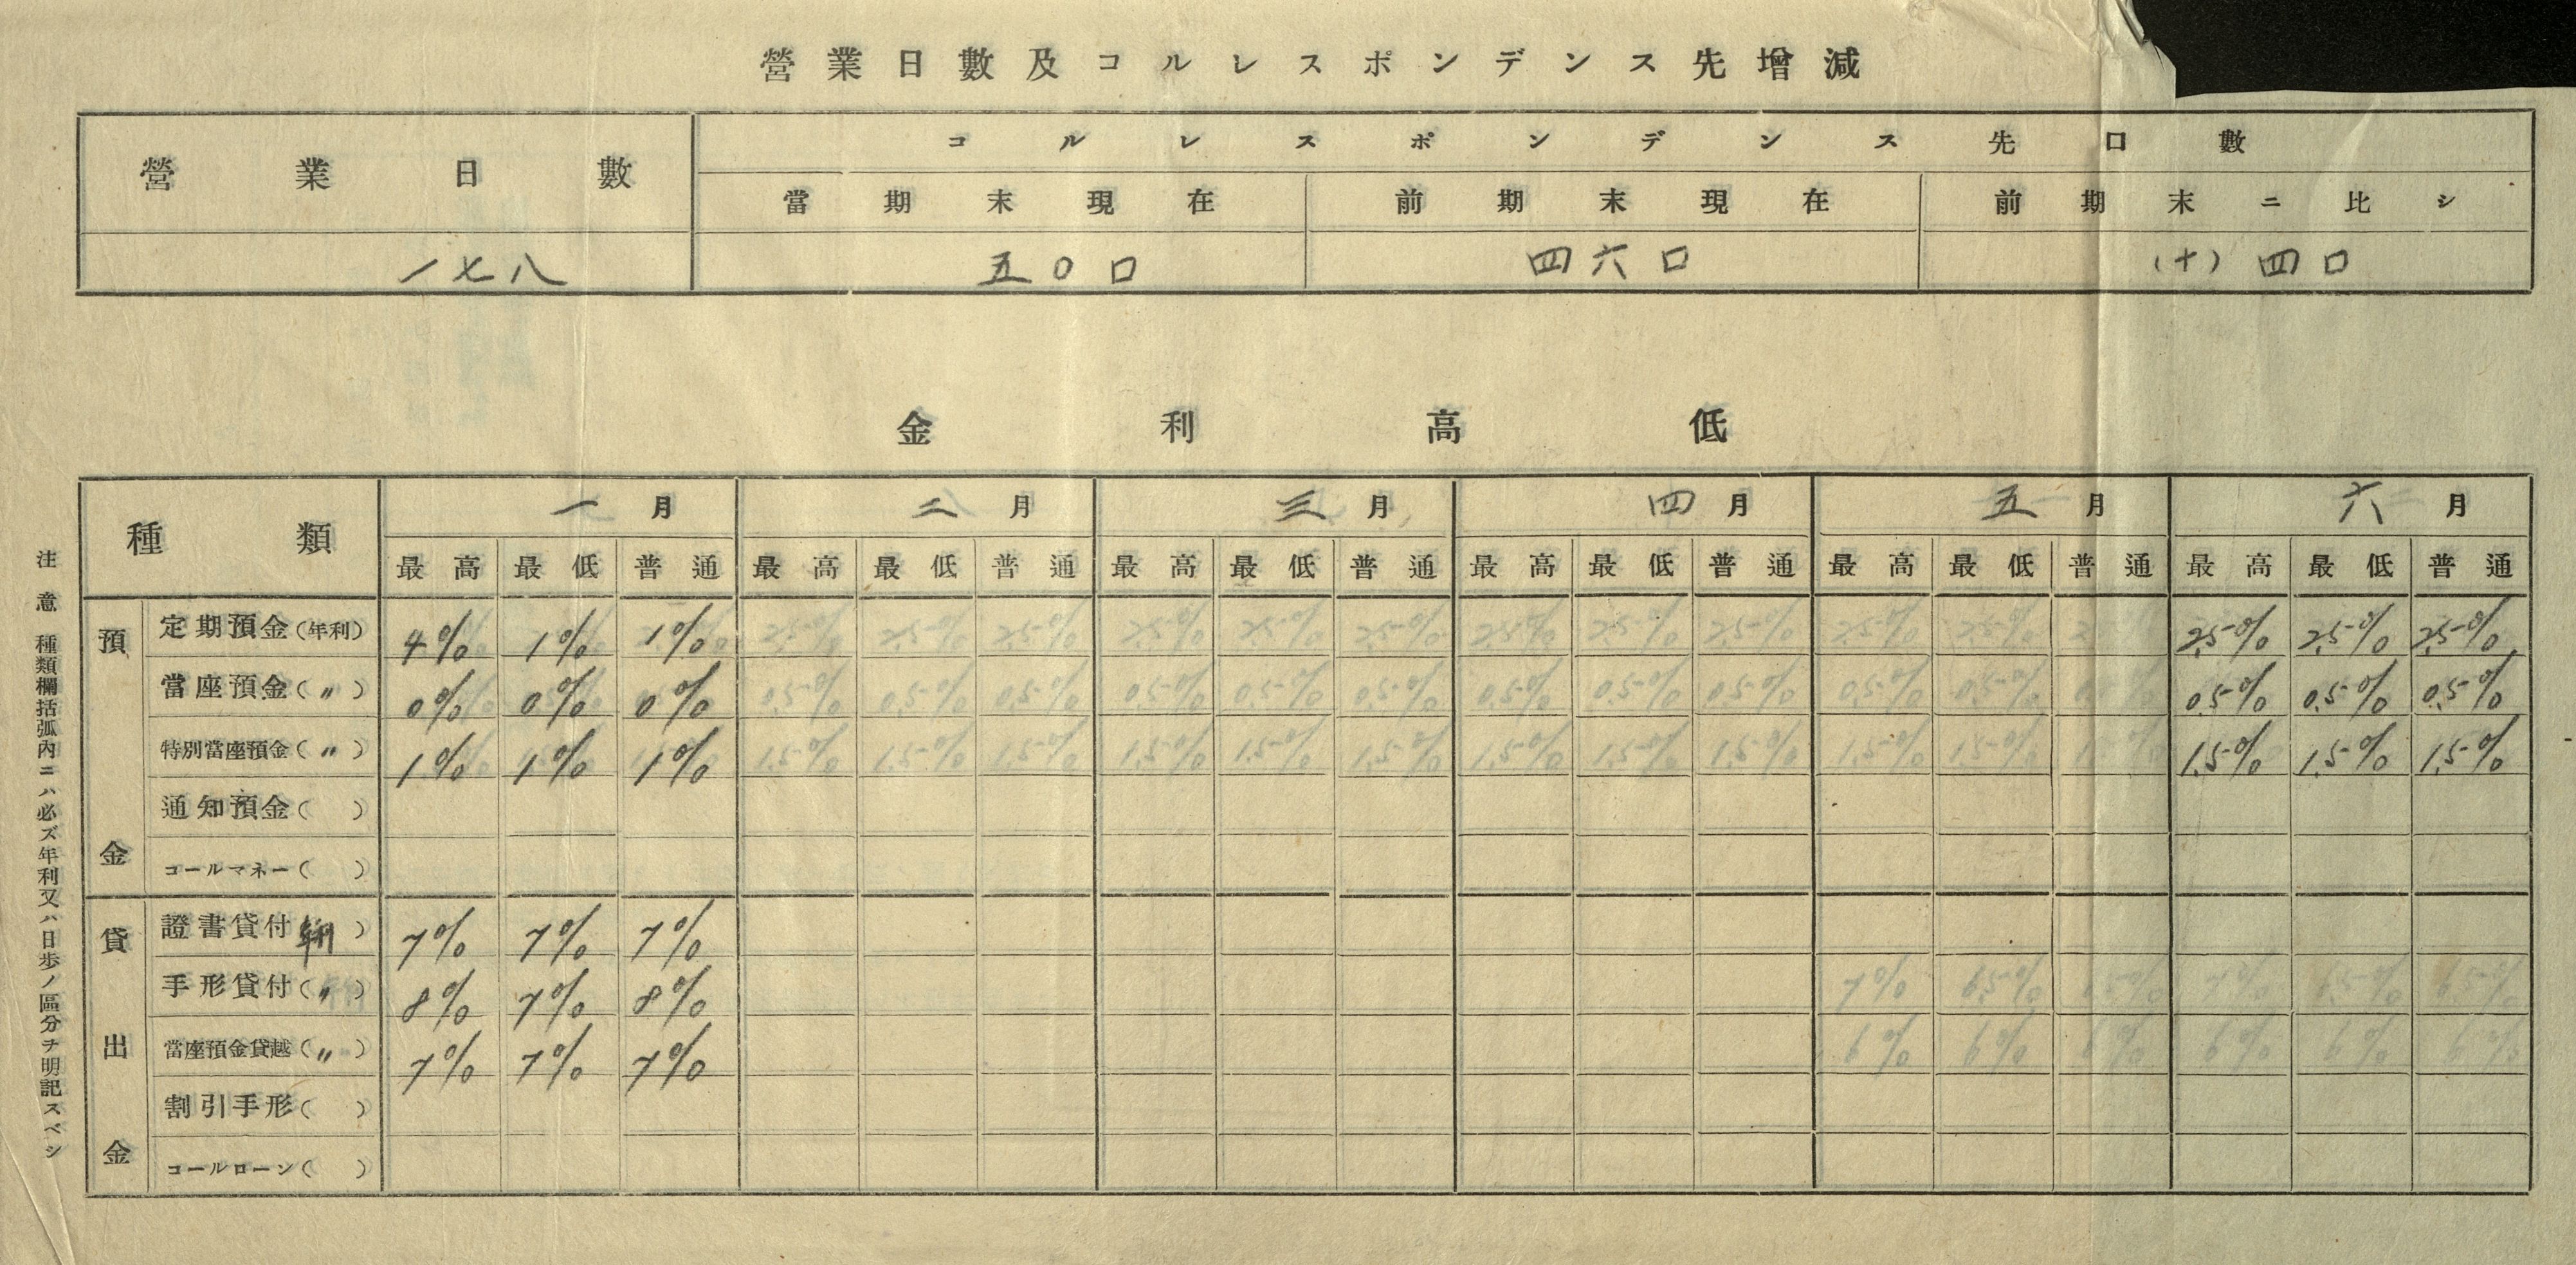 營業日數及コルレスポンデンス先增減
營業日數 コルレスポンデンス先口數
當期末現在 前期末現在 前期末ニ比シ
一七八 五〇口 四六口 (十)四口
金利高低
種類 一月 二月 三月 四月 五月 六月
最高 最低 普通 最高 最低 普通 最高 最低 普通 最高 最低 普通 最高 最低 普通 最高 最低 普通
預金
定期預金(年利) 4% 1% 1% 2.5% 2.5% 2.5% 2.5% 2.5% 2.5% 2.5% 2.5% 2.5% 2.5% 2.5% 2.5% 2.5% 2.5%
當座預金(〃) 0% 0% 0% 0.5% 0.5% 0.5% 0.5% 0.5% 0.5% 0.5% 0.5% 0.5% 0.5% 0.5% 0.5% 0.5% 0.5%
特別當座預金(〃) 1% 1% 1% 1.5% 1.5% 1.5% 1.5% 1.5% 1.5% 1.5% 1.5% 1.5% 1.5% 1.5% 1.5% 1.5% 1.5%
通知預金( )
コールマネー( )
貸出金
證書貸付 年利) 7% 7% 7%
手形貸付(〃) 8% 7% 8% 7% 6.5% 6.5% 7% 6.5% 6.5%
當座預金貸越(〃) 7% 7% 7% 6% 6% 6% 6% 6% 6%
割引手形( )
コールローン( )
注意 種類欄括弧內ニハ必ズ年利又ハ日步ノ區分ヲ明記スベシ